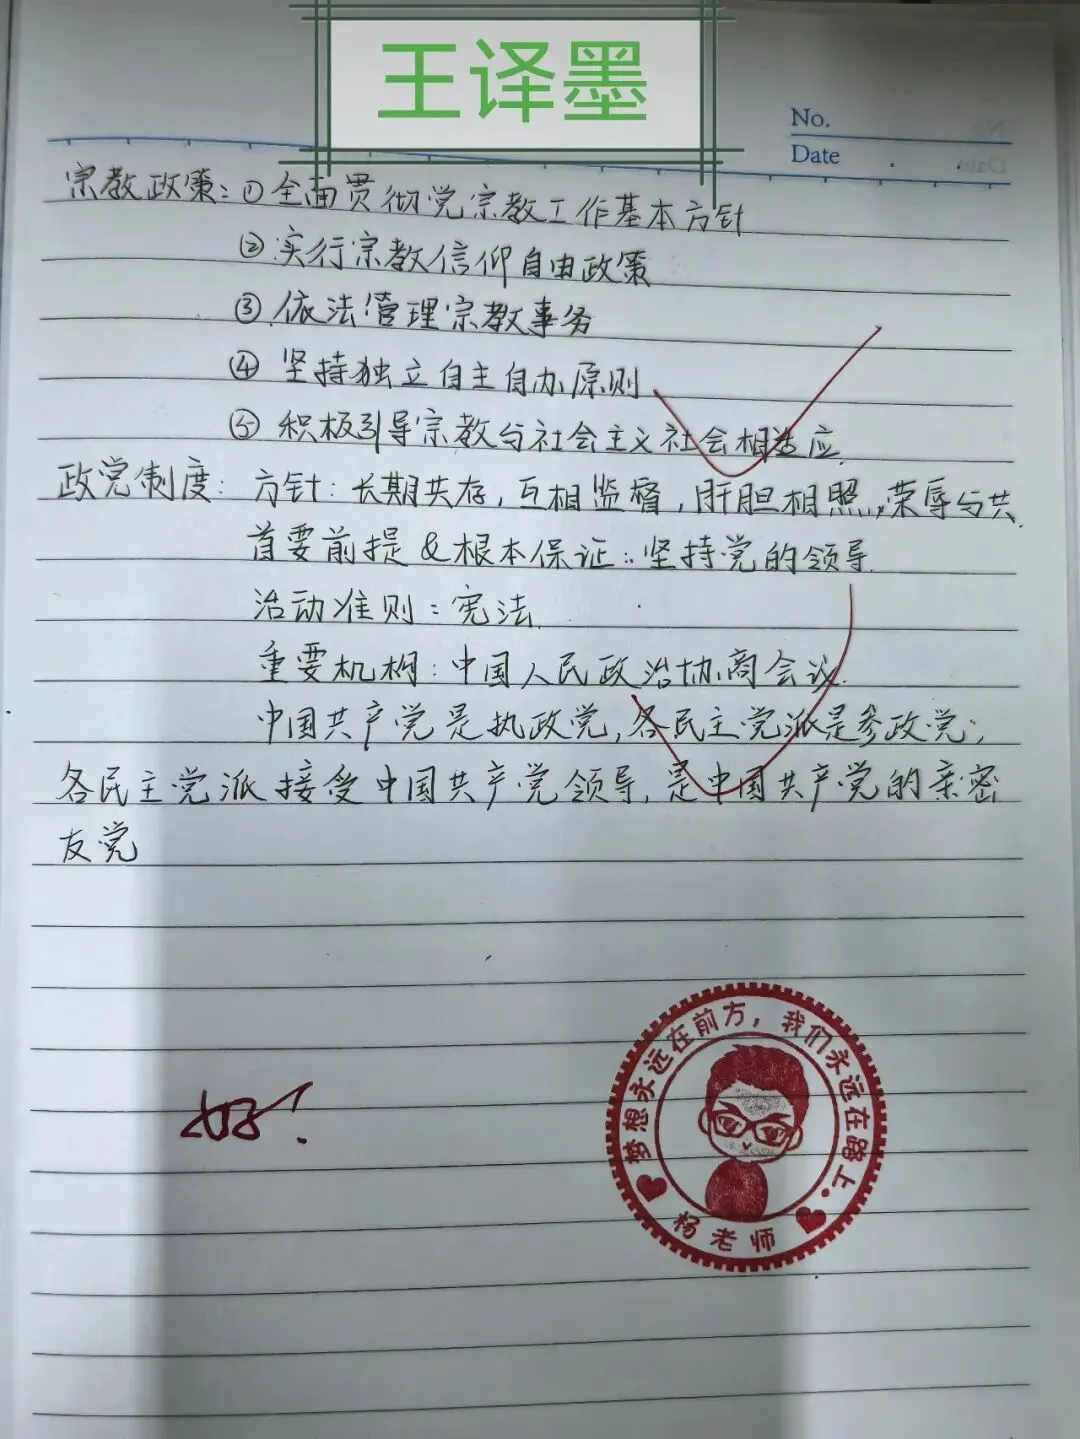 王译墨
No.
Date
宗教政策:①全面贯彻党宗教工作基本方针
②实行宗教信仰自由政策
③依法管理宗教事务
④坚持独立自主自办原则
⑤积极引导宗教与社会主义社会相适应.
政党制度:方针:长期共存,互相监督,肝胆相照,荣辱与共.
首要前提&根本保证:坚持党的领导.
活动准则:宪法.
重要机构:中国人民政治协商会议.
中国共产党是执政党,各民主党派是参政党;
各民主党派接受中国共产党领导,是中国共产党的亲密
友党
好!
梦想永远在前方，我们永远在路上。
杨老师